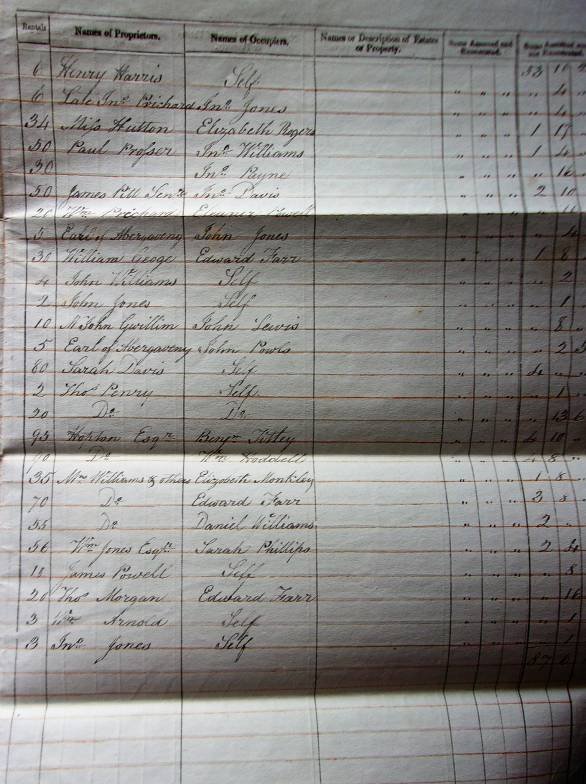 Rentals Names of Proprietors. Names of Occupiers. Names or Description of Estates or Property. Sums Assessed and Exonerated. Sums Assessed and not Exonerated.
6 Henry Harris Self
6 Late Jno. Prichard Jno. Jones " " " " 4
34 Miss Hutton Elizabeth Rogers " " " 1 17
50 Paul Prosser Jno. Williams " " " 1 4
30 Jno. Payne " " " " 16
50 James Pill Senr. Jno. Davis " " " 2 10
20 Wm. Prichard Eleanor Powell
5 Earl of Abergaveny John Jones " " " "
30 William Geoge Edward Farr " " " 1 8
4 John Williams Self " " " " 2
2 John Jones Self " " " " 1
10 M John Gwillim John Lewis " " " " 8
5 Earl of Abergaveny John Powls " " " " 2
60 Sarah Davis Self " " " 4 "
2 Thos. Penry Self " " " " 1
20 Do. Do. " " " " 13 6
95 Hopton Esqr. Benjn. Tittey " " " 4 10
90 Do. Wm. Woddell " " " 4 8
35 Mrs. Williams & others Elizabeth Monkley " " " 1 8
70 Do. Edward Farr " " " 3 8
55 Do. Daniel Williams " " " 2 "
56 Wm. Jones Esqr. Sarah Phillips " " " 2 4
10 James Powell Self " " " " 8
20 Thos. Morgan Edward Farr " " " " 16
3 Wm. Arnold Self " " " " 1
3 Jno. Jones Self " " " " 1